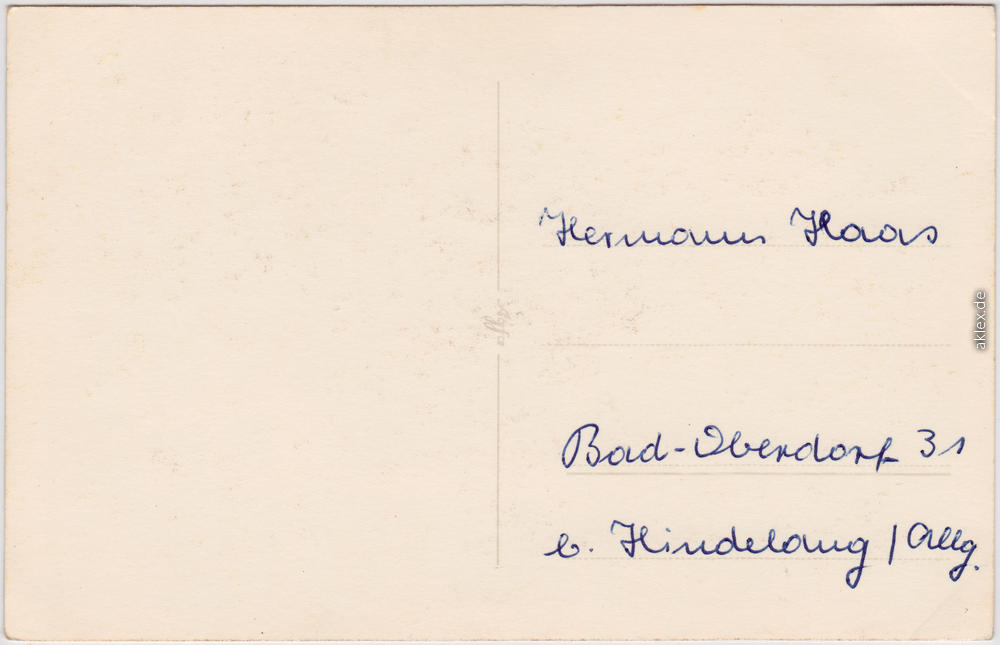 Hermann Haas
Bad-Oberdorf 31
b. Hindelang / Allg.
aklex.de